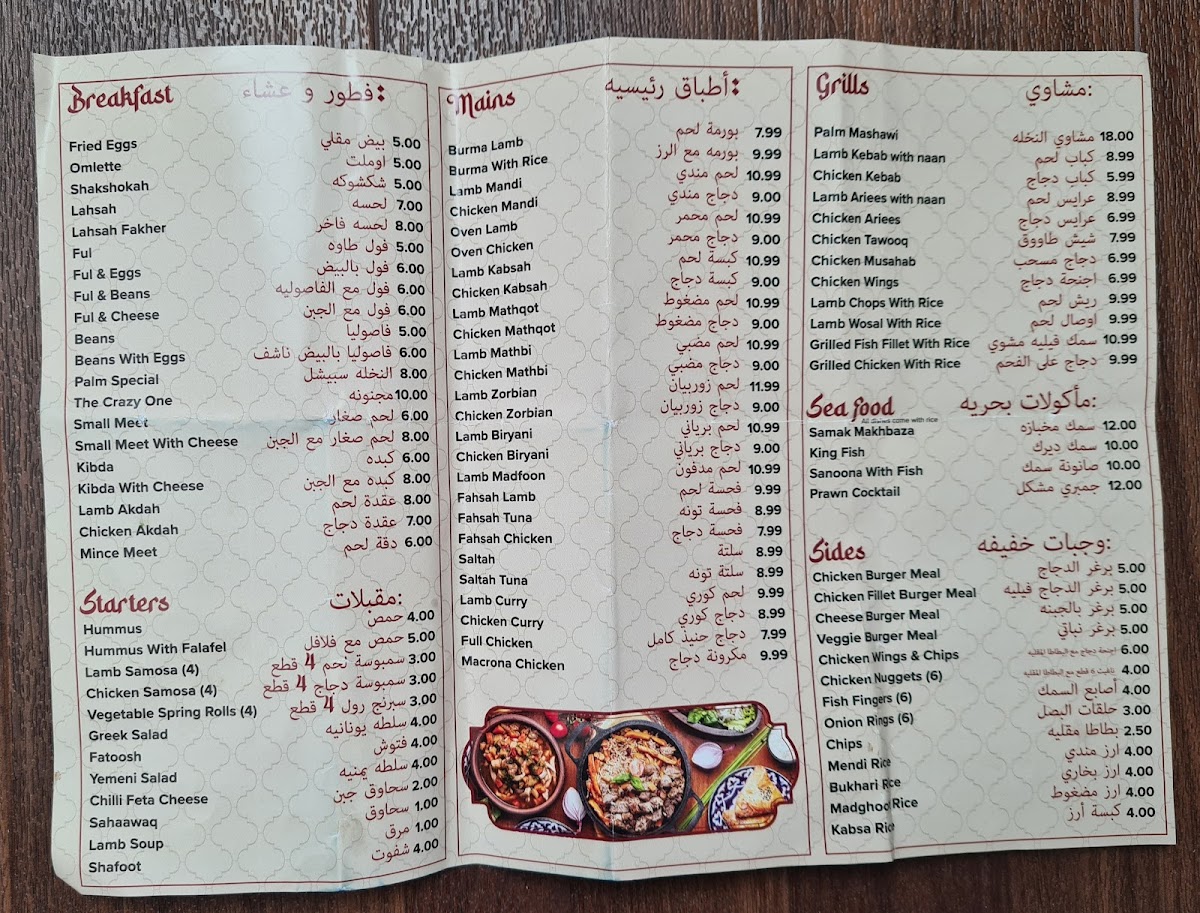 Breakfast فطور و عشاء:
Fried Eggs بيض مقلي 5.00
Omlette اوملت 5.00
Shakshokah شكشوكه 5.00
Lahsah لحسه 7.00
Lahsah Fakher لحسه فاخر 8.00
Ful فول طاوه 5.00
Ful & Eggs فول بالبيض 6.00
Ful & Beans فول مع الفاصوليه 6.00
Ful & Cheese فول مع الجبن 6.00
Beans فاصوليا 5.00
Beans With Eggs فاصوليا بالبيض ناشف 6.00
Palm Special النخله سبيشل 8.00
The Crazy One مجنونه 10.00
Small Meet لحم صغار 6.00
Small Meet With Cheese لحم صغار مع الجبن 8.00
Kibda كبده 6.00
Kibda With Cheese كبده مع الجبن 8.00
Lamb Akdah عقدة لحم 8.00
Chicken Akdah عقدة دجاج 7.00
Mince Meet دقة لحم 6.00
Starters مقبلات:
Hummus حمص 4.00
Hummus With Falafel حمص مع فلافل 5.00
Lamb Samosa (4) سمبوسة لحم 4 قطع 3.00
Chicken Samosa (4) سمبوسة دجاج 4 قطع 3.00
Vegetable Spring Rolls (4) سبرنج رول 4 قطع 3.00
Greek Salad سلطه يونانيه 4.00
Fatoosh فتوش 4.00
Yemeni Salad سلطه يمنيه 4.00
Chilli Feta Cheese سحاوق جبن 2.00
Sahaawaq سحاوق 1.00
Lamb Soup مرق 1.00
Shafoot شفوت 4.00
Mains أطباق رئيسيه:
Burma Lamb بورمة لحم 7.99
Burma With Rice بورمه مع الرز 9.99
Lamb Mandi لحم مندي 10.99
Chicken Mandi دجاج مندي 9.00
Oven Lamb لحم محمر 10.99
Oven Chicken دجاج محمر 9.00
Lamb Kabsah كبسة لحم 10.99
Chicken Kabsah كبسة دجاج 9.00
Lamb Mathqot لحم مضغوط 10.99
Chicken Mathqot دجاج مضغوط 9.00
Lamb Mathbi لحم مضبي 10.99
Chicken Mathbi دجاج مضبي 9.00
Lamb Zorbian لحم زوربيان 11.99
Chicken Zorbian دجاج زوربيان 9.00
Lamb Biryani لحم برياني 10.99
Chicken Biryani دجاج برياني 9.00
Lamb Madfoon لحم مدفون 10.99
Fahsah Lamb فحسة لحم 9.99
Fahsah Tuna فحسة تونه 8.99
Fahsah Chicken فحسة دجاج 7.99
Saltah سلتة 8.99
Saltah Tuna سلتة تونه 8.99
Lamb Curry لحم كوري 9.99
Chicken Curry دجاج كوري 8.99
Full Chicken دجاج حنيذ كامل 7.99
Macrona Chicken مكرونة دجاج 9.99
Grills مشاوي:
Palm Mashawi مشاوي النخله 18.00
Lamb Kebab with naan كباب لحم 8.99
Chicken Kebab كباب دجاج 5.99
Lamb Ariees with naan عرايس لحم 8.99
Chicken Ariees عرايس دجاج 6.99
Chicken Tawooq شيش طاووق 7.99
Chicken Musahab دجاج مسحب 6.99
Chicken Wings اجنحة دجاج 6.99
Lamb Chops With Rice ريش لحم 9.99
Lamb Wosal With Rice اوصال لحم 9.99
Grilled Fish Fillet With Rice سمك فيليه مشوي 10.99
Grilled Chicken With Rice دجاج على الفحم 9.99
Sea food مأكولات بحريه:
All dishes come with rice
Samak Makhbaza سمك مخبازه 12.00
King Fish سمك ديرك 10.00
Sanoona With Fish صانونة سمك 10.00
Prawn Cocktail جمبري مشكل 12.00
Sides وجبات خفيفه:
Chicken Burger Meal برغر الدجاج 5.00
Chicken Fillet Burger Meal برغر الدجاج فيليه 5.00
Cheese Burger Meal برغر بالجبنه 5.00
Veggie Burger Meal برغر نباتي 5.00
Chicken Wings & Chips اجنحة دجاج مع البطاطا المقليه 6.00
Chicken Nuggets (6) 4.00
Fish Fingers (6) أصابع السمك 4.00
Onion Rings (6) حلقات البصل 3.00
Chips بطاطا مقليه 2.50
Mendi Rice ارز مندي 4.00
Bukhari Rice ارز بخاري 4.00
Madghoo Rice ارز مضغوط 4.00
Kabsa Rice كبسة أرز 4.00